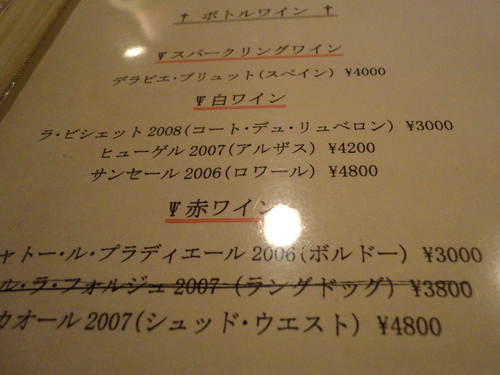 † ボトルワイン †
Ψスパークリングワイン
デラピエ・ブリュット(スペイン) ¥4000
Ψ白ワイン
ラ・ビシェット2008(コート・デュ・リュベロン) ¥3000
ヒューゲル2007(アルザス) ¥4200
サンセール2006(ロワール) ¥4800
Ψ赤ワイン
ャトー・ル・プラディエール2006(ボルドー) ¥3000
ル・ラ・フォルジュ2007 (ラングドッグ) ¥3800
カオール2007(シュッド・ウエスト) ¥4800